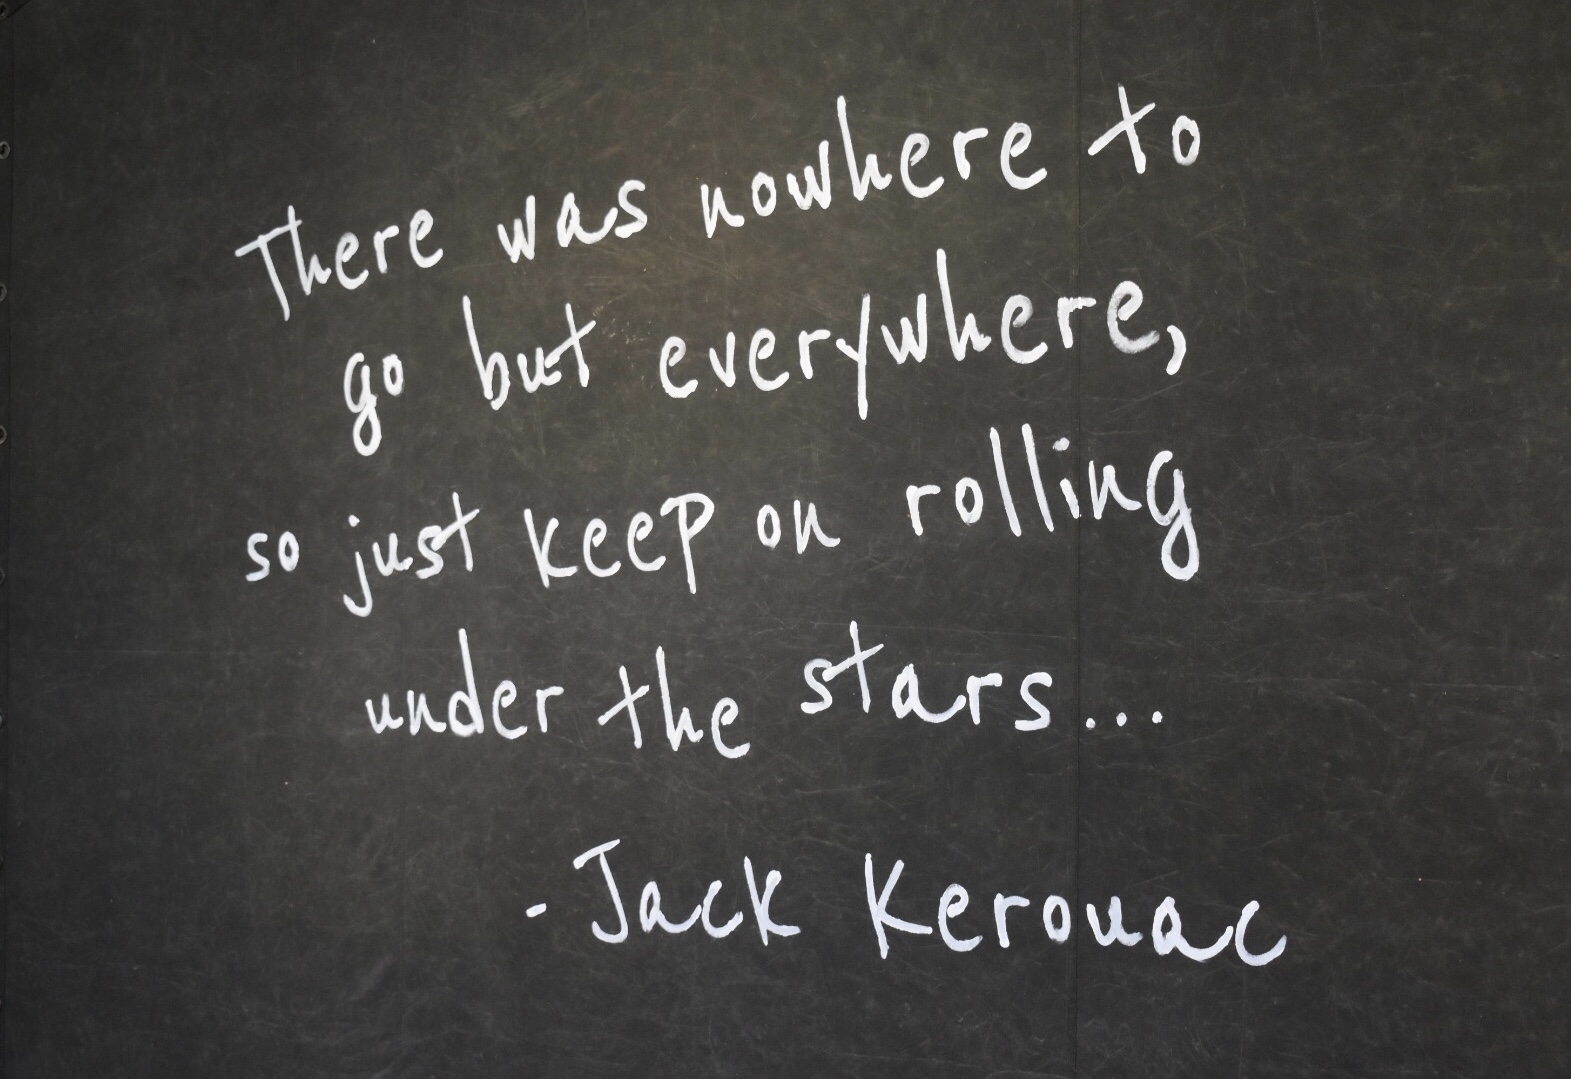 There was nowhere to
go but everywhere,
so just keep on rolling
under the stars...
- Jack Kerouac